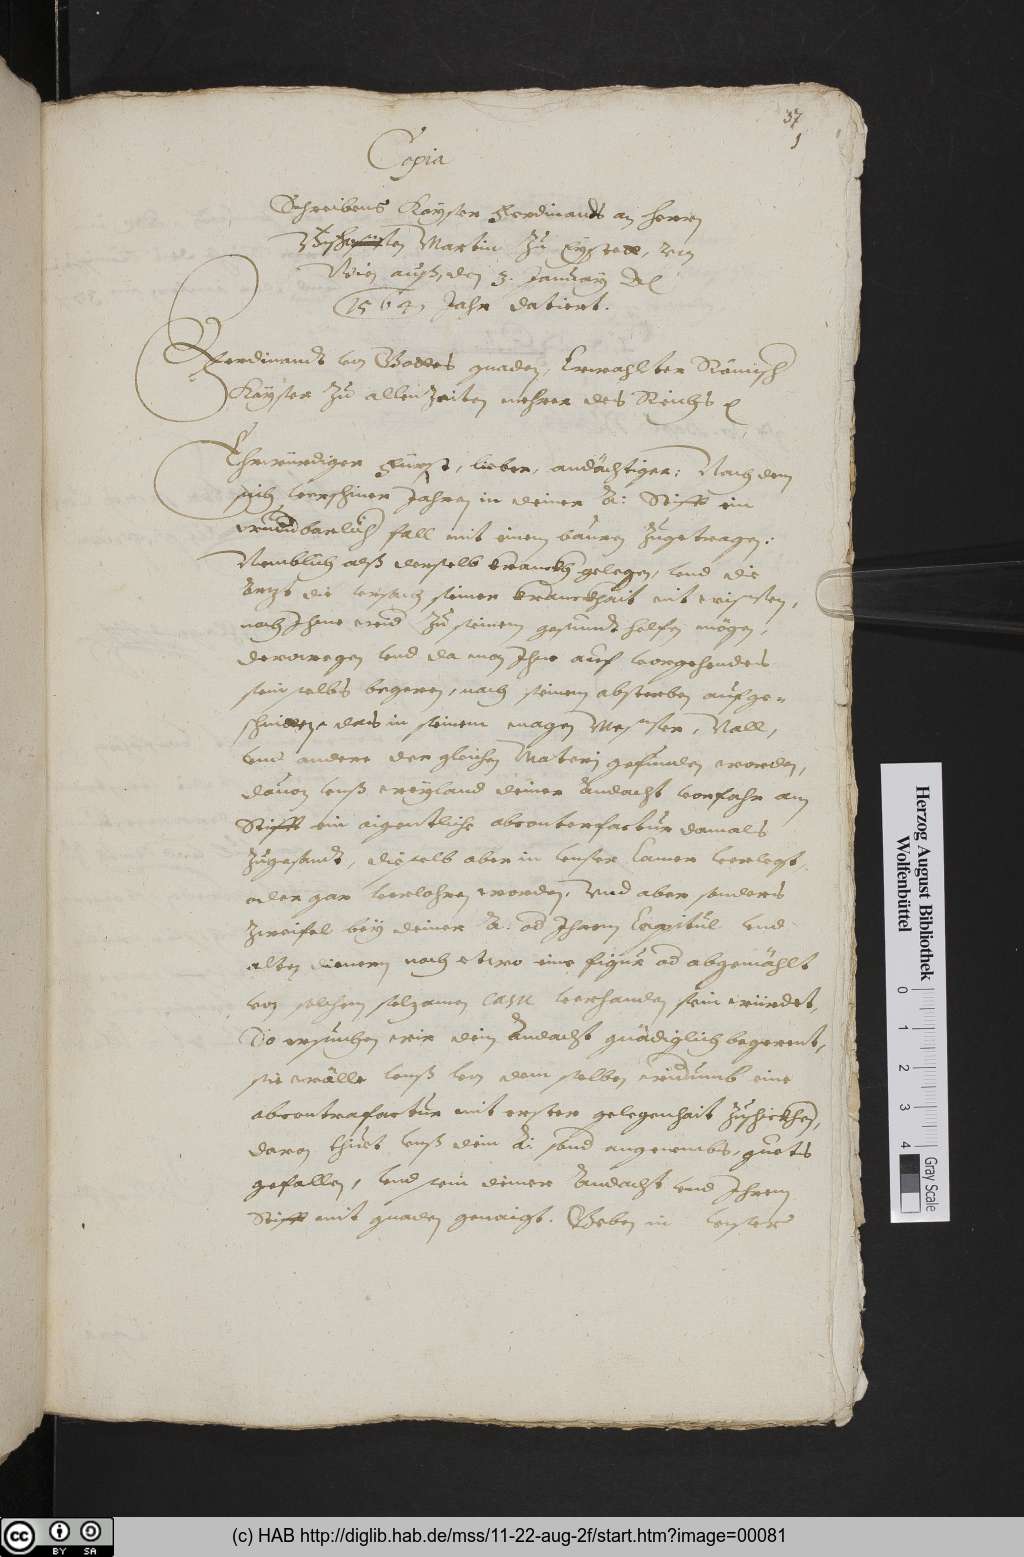 37
1
Copia
Schreibens Kayser Ferdinands an herrn
Bischoffen Martin zu Eystett, von
Wien auß, den 3. January des
1564 Jahr datiert.
Ferdinandt von Gottes gnaden, Erwahlter Römisch
Kayser zu allen zeiten mehrer des Reichs
Ehrwürdiger Fürst, lieber, andächtiger: Nachdem
sich verschiner Jahren in deiner A: Stifft ein
wunderbarlich fall mit einem bauren zugetragen:
Nemblich alß derselb kranckh gelegen, vnd die
Ärzt die vrsach seiner kranckhait nit wissten,
noch Ihme zu seinem gesundt helfen mögen,
derowegen vnd da man Ihne auf vorgehendes
sein selbs begeren, nach seinem absterben aufge-
schnitten, das in seinem magen Messer, Näll,
vnd andere der gleichen Materi gefunden worden,
dauon vnß weyland deiner Andacht vorfahr am
Stifft ein aigentliche abconterfactur damals
zugesandt, dieselb aber in vnser Camer verlegt,
oder gar verlohren worden, Vnd aber sonders
zweifel bey deiner A: od Ihrem Capitul vnd
alten dienern noch etwo eine figur od abgemählt
von solchem selzamen casu verhanden sein würdet,
So ersuchen wir dein Andacht gnädiglich begerent,
sie wölle vnß von dem selben widumb eine
abcontrafactur mit erster gelegenhait zuschickhen,
daran thuet vnß dein A: sond angenembs, guets
gefallen, vnd sein deiner Andacht vnd Ihrem
Stifft mit gnaden genaigt. Geben in vnser
Herzog August Bibliothek
Wolfenbüttel
0 1 2 3 4
Gray Scale
cc BY SA
(c) HAB http://diglib.hab.de/mss/11-22-aug-2f/start.htm?image=00081